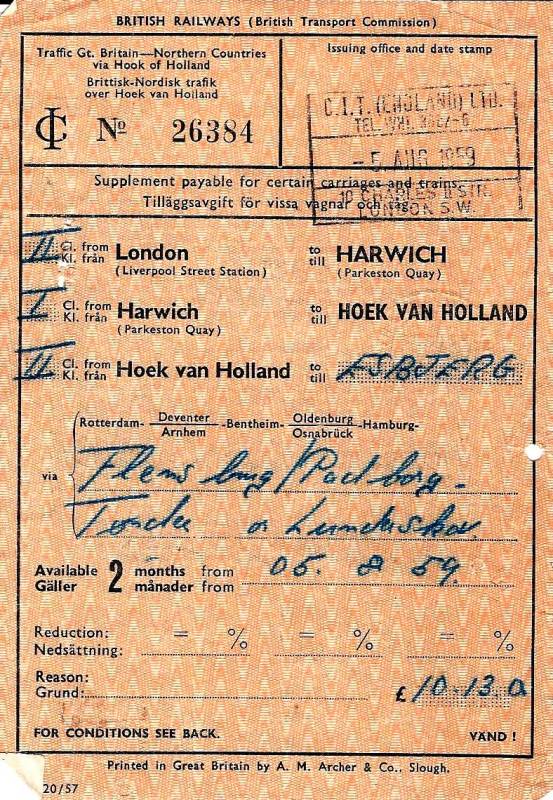 BRITISH RAILWAYS (British Transport Commission)
Traffic Gt. Britain—Northern Countries
via Hook of Holland
Brittisk-Nordisk trafik
over Hoek van Holland
Issuing office and date stamp
C.I.T. (ENGLAND) LTD.
TEL. WHI.
- 5. AUG 1959
10 CHARLES II STR.
LONDON S.W.
CI No 26384
Supplement payable for certain carriages and trains.
Tilläggsavgift för vissa vagnar och tåg.
II Cl. from London to HARWICH
Kl. från (Liverpool Street Station) till (Parkeston Quay)
I Cl. from Harwich to HOEK VAN HOLLAND
Kl. från (Parkeston Quay) till
II Cl. from Hoek van Holland to ESBJERG
Kl. från till
Rotterdam- Deventer -Bentheim- Oldenburg -Hamburg-
Arnhem Osnabrück
via Flensburg/Padborg-
Tønder or Lunderskov.
Available 2 months from 05. 8 59.
Gäller månader from
Reduction: = % = % = %
Nedsättning:
Reason:
Grund: £ 10-13.0
FOR CONDITIONS SEE BACK. VÄND !
Printed in Great Britain by A. M. Archer & Co., Slough.
20/57